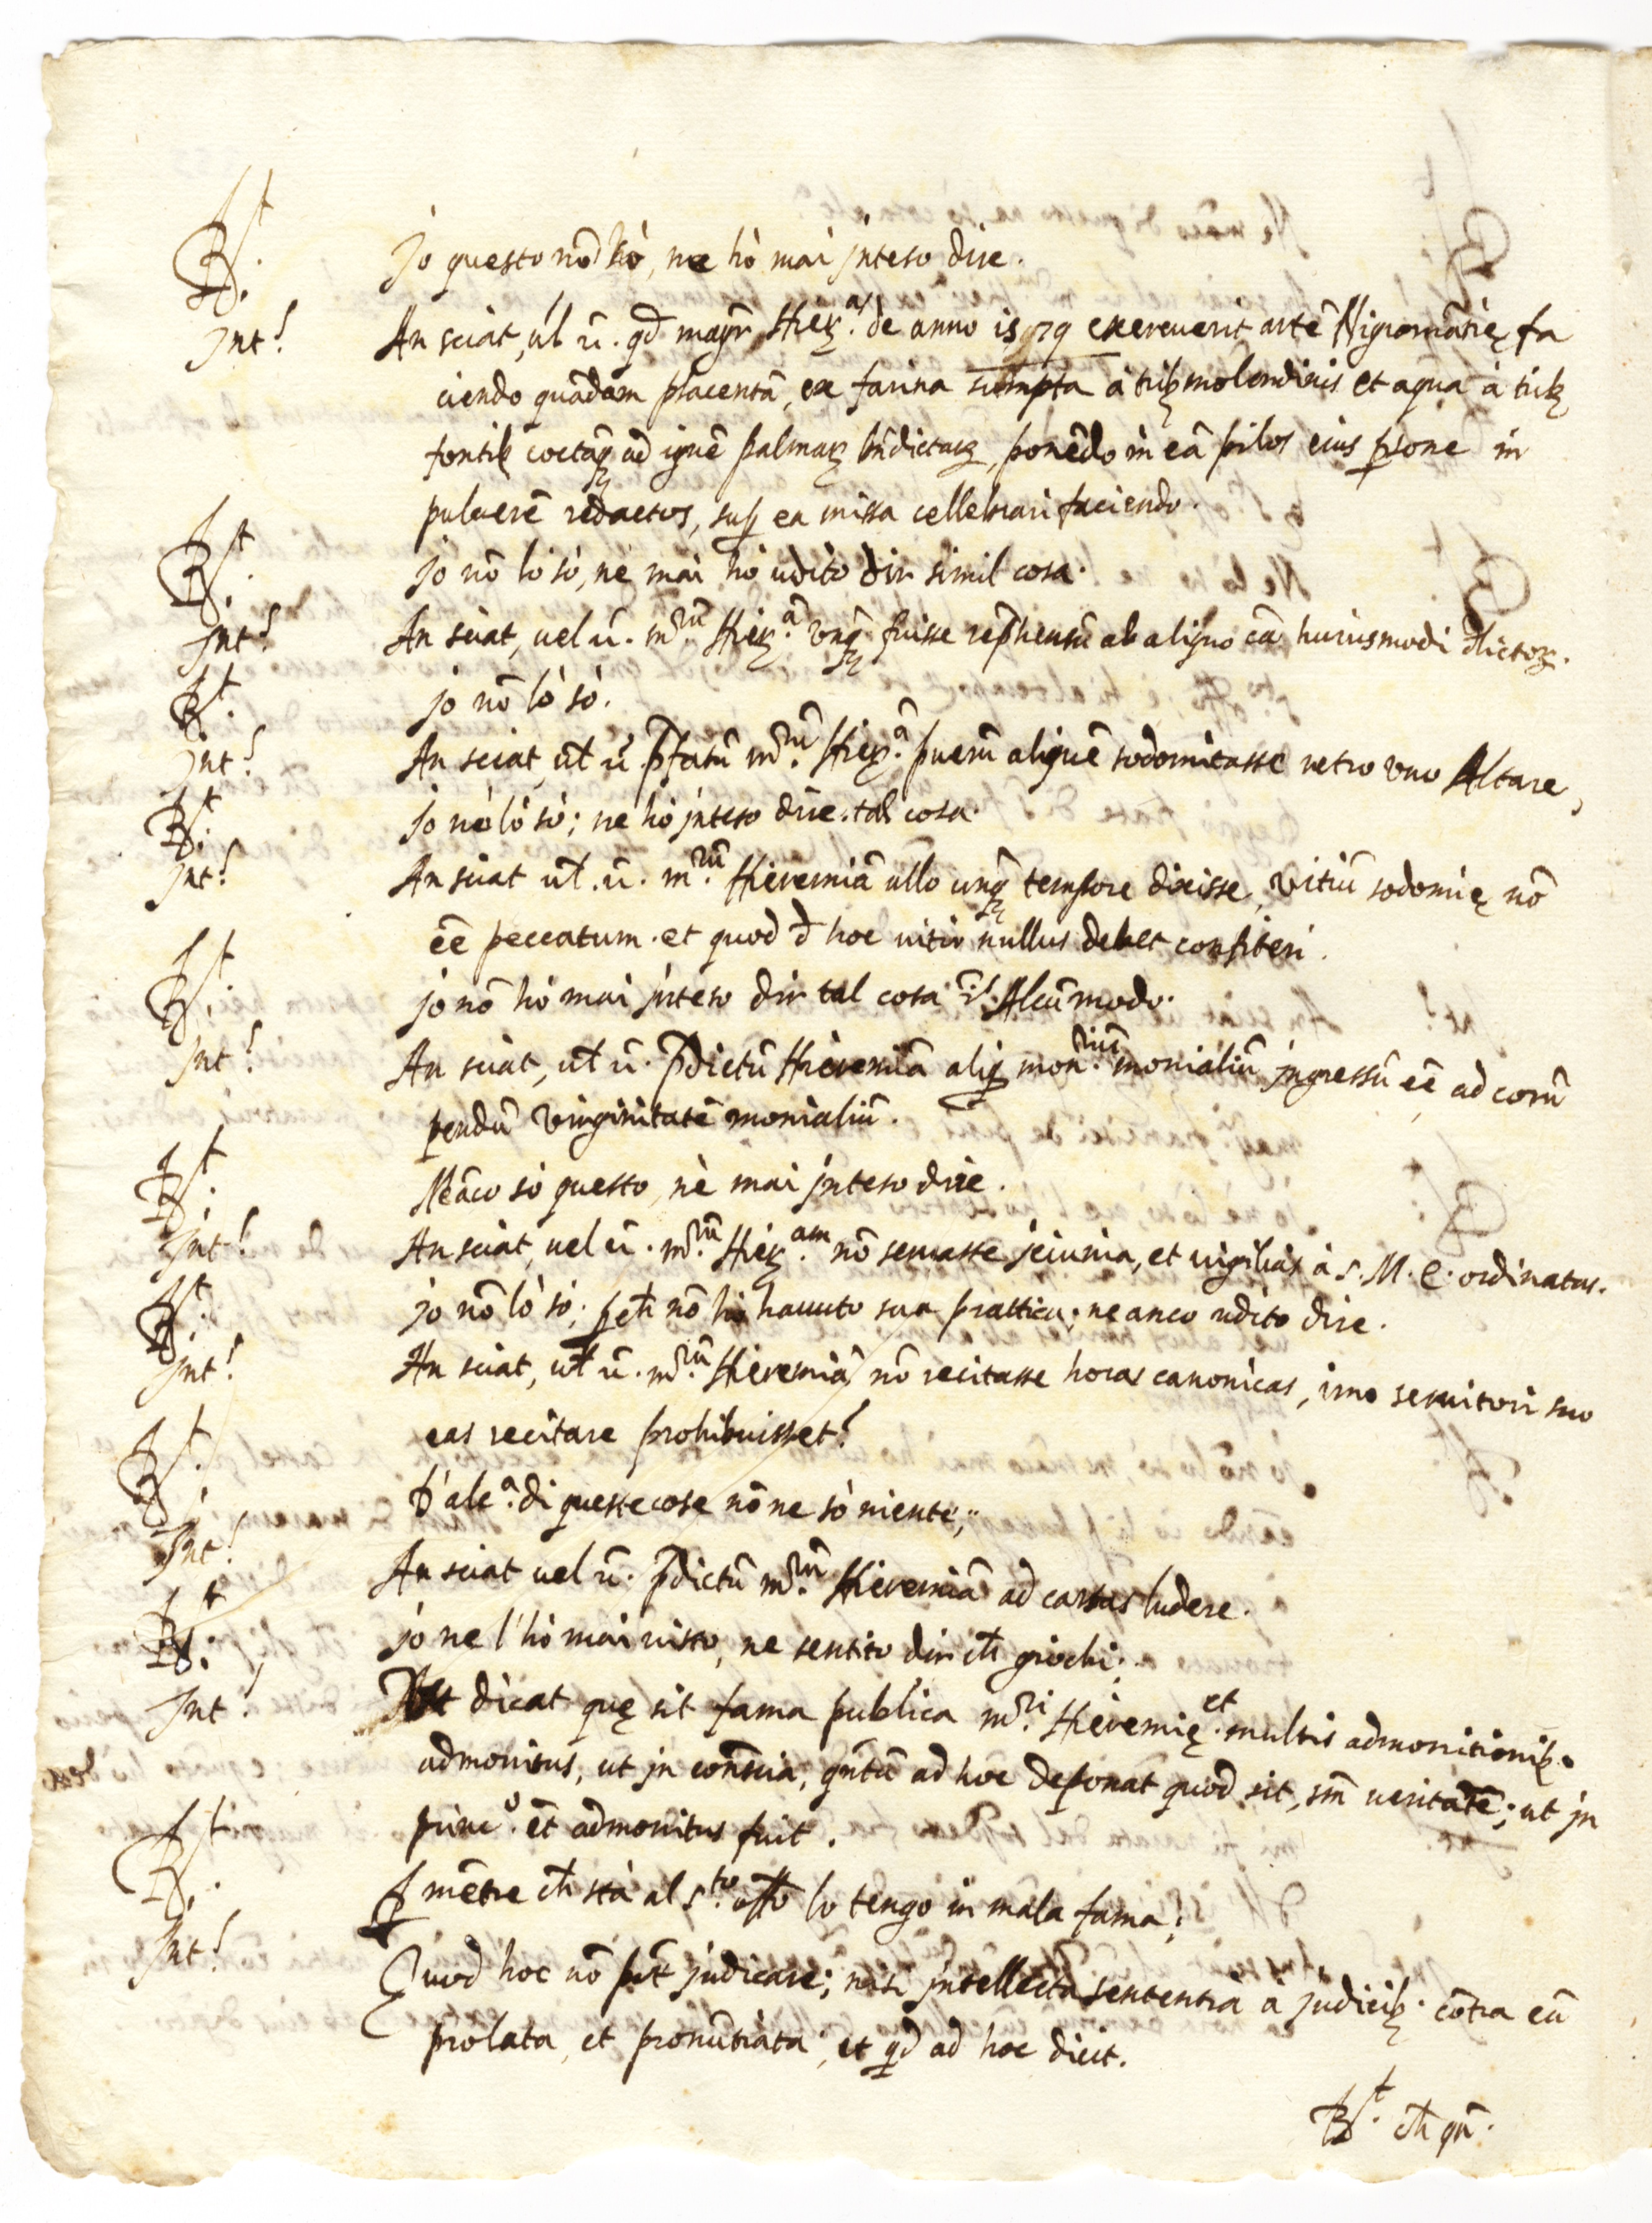 R.t Jo questo nõ hò, ne hò mai jnteso dire.
Jnt.s An sciat, ul ũ. qd magr Hier.as de anno exercuerit artẽ Nigromãtię fa
ciendo quãdam placentã, ex farina sumpta à tribꝫ molendinis et aqua à tribꝫ
fontibꝫ coctaqꝫ ad ignẽ palmarꝫ bñdictarꝫ, ponẽdo in eã pilos eius psone in
puluerẽ redactos, supꝫ ea missa cellebrari faciendo.
R.t Jo nõ lo sò, nè mai hò udito dir simil cosa.
Jnt.s An sciat, uel ũ. m.rũ Hier.ã vnqꝫ fuisse rephensũ ab aliquo cã huiusmodi dlictorꝫ.
R.t Jo nõ lò sò.
Jnt.s An sciat, ul ũ pfatũ m.rũ Hier.ã puerũ aliquẽ sodomitasse retro vno Altare,
R.t Jo nò lò sò; ne hò jnteso dire tal cosa.
Jnt.s An sciat ul. ũ. m.rũ Hieremiã ullo unqꝫ tempore dixisse, vitiũ sodomię nõ
eẽ peccatum. et quod d hoc uitio nullus debet confiteri.
R.t Jo nõ hò mai jnteso dir tal cosa Alcũ modo.
Jnt.s An sciat, ul ũ. pdictũ Hieremiã aliqꝫ mon.riũ monialiũ jngressũ eẽ ad corũ
pendũ virginitatẽ monialiũ.
R.t Neãco sò questo, nè mai jnteso dire.
Jnt.s An sciat, uel ũ. m.rũ Hier.am nõ seruasse jeiunia, et uigilias à S. M. E. ordinatas.
R.t Jo nõ lò sò; pch nõ hò hauuto sua prattica; ne anco udito dire.
Jnt.s An sciat, ul ũ. m.rũ Hieremiã nõ recitasse horas canonicas, imo seruitori suo
eas recitare prohibuisset?
R.t D'alc.a di queste cose nõ ne sò niente;
Jnt.s An sciat uel ũ. pdictũ m.rũ Hieremiã ad cartas ludere.
R.t Jo ne l'hò mai uisto, ne sentito dir ch giochi;
Jnt.s Ut dicat quę sit fama publica m.ri Hieremię. et multis admonitionibꝫ.
admonitus, ut jn conscia, qntũ ad hoc deponat quod sit, sm ueritatẽ; ut jn
princ.o et admonitus fuit.
R.t P mẽtre ch stà al s.to offo lo tengo in mala fama;
Jnt.s Quod hoc nõ pot judicare; nisi jntellecta sententia à judicibꝫ. cõtra eũ
prolata, et pronũtiata; et qd ad hoc dicit.
R.t ch qn.